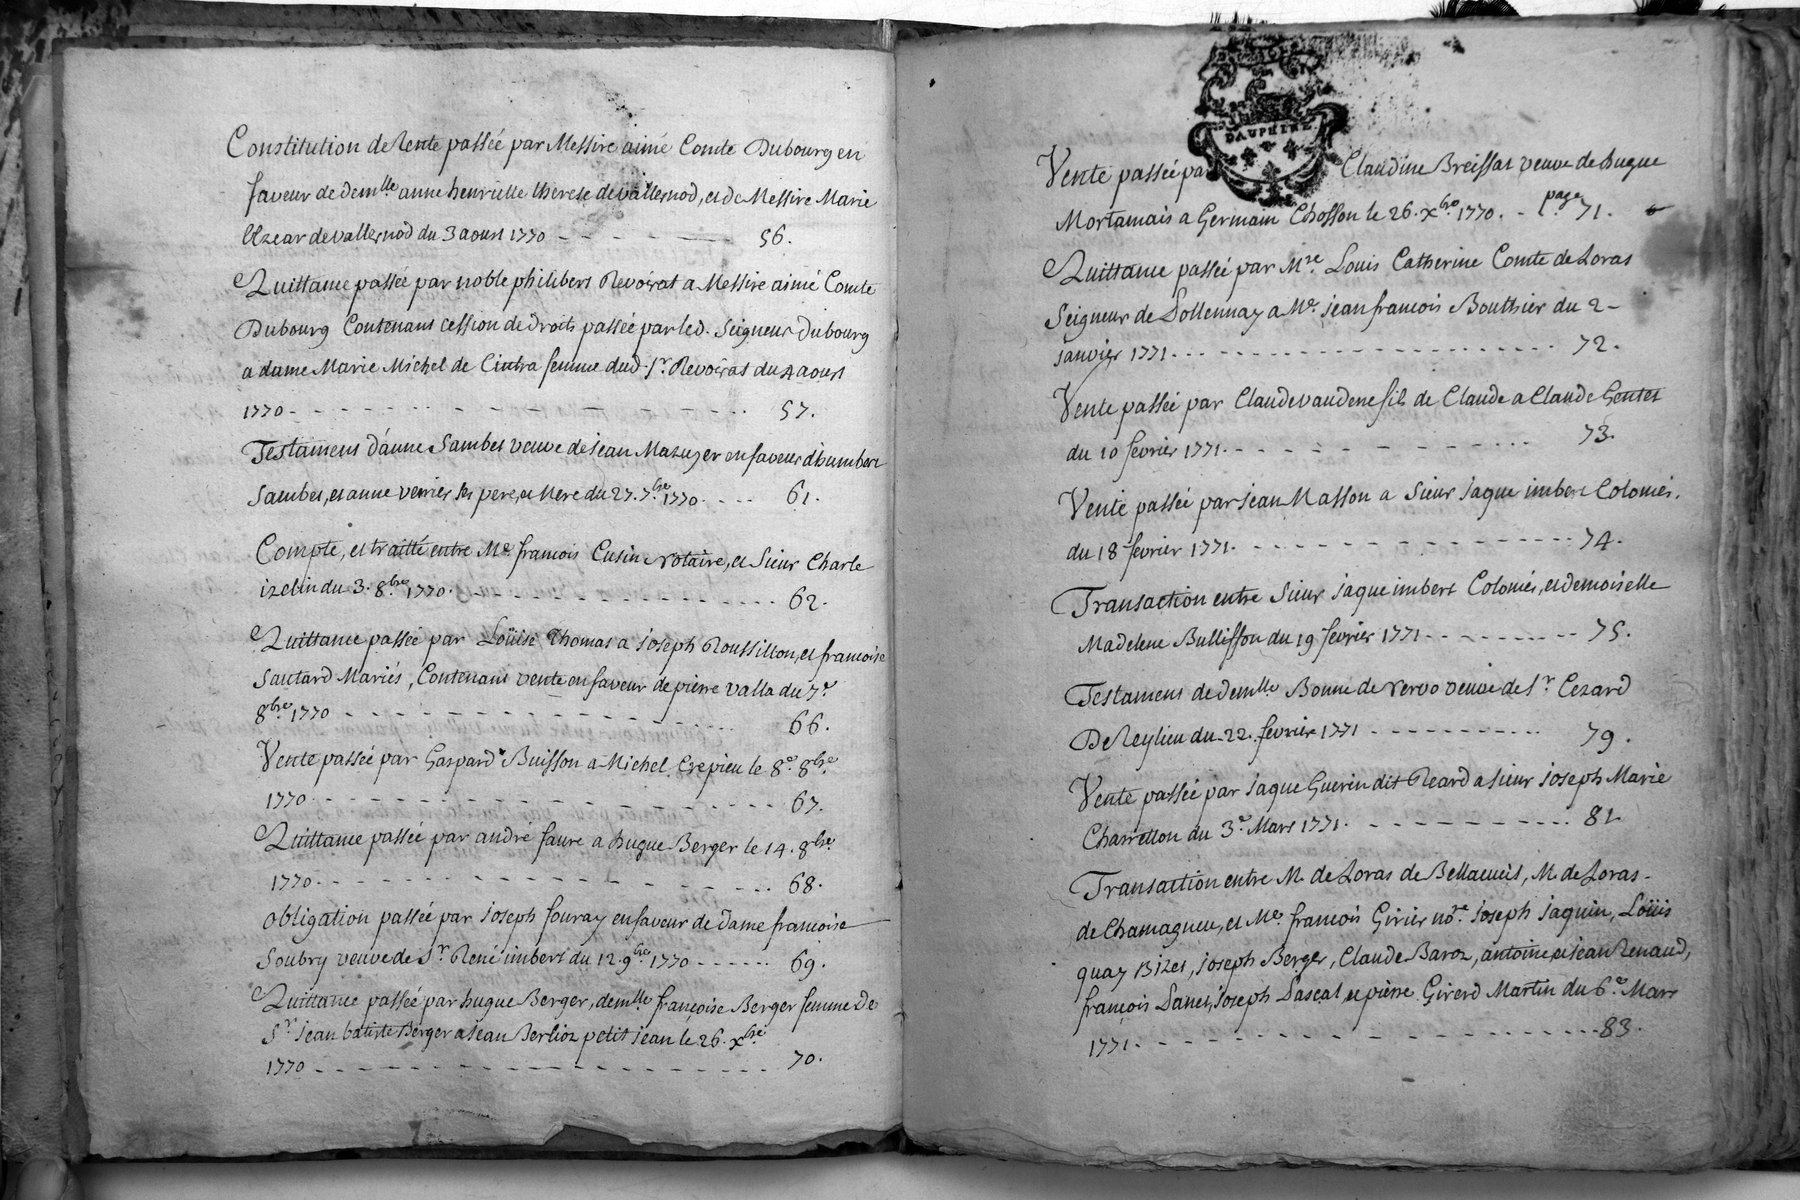 Constitution de Rente passée par Messire aimé Comte Dubourg en
faveur de demlle anne henriette therese de vallernod, et de Messire Marie
Elzear de vallernod du 3 aoust 1770 - - - - 56.
Quittance passée par noble philibert Revoirat a Messire aimé Comte
Dubourg Contenant cession de droits passée par led. Seigneur Dubourg
a dame Marie Michel de Cintra femme dud. Sr. Revoirat du 4 aoust
1770 - - - - - - - - - - 57.
Testament d'anne Sambet veuve de jean Mazuyer en faveur d'humbert
Sambet, et anne verrier ses pere, et Mere du 27. 7bre 1770 - - - - 61.
Compte, et traitté entre Me. francois Cusin Notaire, et Sieur Charle
izelin du 3. 8bre 1770 - - - - - - - - - - 62.
Quittance passée par Loüise Thomas a joseph Roussillon, et francoise
Sautard Mariés, Contenant vente en faveur de pierre valla du 7e
8bre 1770 - - - - - - - - - - 66.
Vente passée par Gaspard Buisson a Michel Crepieu le 8e. 8bre.
1770 - - - - - - - - - - 67.
Quittance passée par andré faure a hugue Berger le 14. 8bre.
1770 - - - - - - - - - - 68.
obligation passée par joseph fouray en faveur de dame francoise
Soubry veuve de Sr. René imbert du 12. 9bre. 1770 - - - - - - 69.
Quittance passée par hugue Berger, demlle françoise Berger femme De
Sr. jean batiste Berger a jean Berlioz petit jean le 26. xbre.
1770 - - - - - - - - - - 70.
DAUPHINE
Vente passée par Claudine Breissat veuve de hugue
Mortamais a Germain Chosson le 26. xbre. 1770. - page 71.
Quittance passée par Mre. Louis Catherine Comte de Loras
Seigneur de Pollennay a Me. jean francois Bouthier du 2 -
janvier 1771 - - - - - - - - - - 72.
Vente passée par Claude vaudene fils de Claude a Claude Gentet
du 10 fevrier 1771 - - - - - - - - - - 73.
Vente passée par jean Masson a Sieur jaque imbert Colomés.
du 18 fevrier 1771 - - - - - - - - - - 74.
Transaction entre Sieur jaque imbert Colomés, et demoiselle
Madelene Bulliffon du 19 fevrier 1771 - - - - - - - - 75.
Testament de demlle Bonne de vervo veuve de Sr. Cezard
De Reylieu du 22. fevrier 1771 - - - - - - - - - 79.
Vente passée par jaque Guerin dit Reard a sieur joseph Marie
Charretton du 3e. Mars 1771 - - - - - - - - - 81.
Transaction entre M. de Loras de Bellacueil, M. de Loras -
de Chamagneu, et Me. francois Girier nore. joseph jaquin, Loüis
quay Bizet, joseph Berger, Claude Baroz, antoine et jean Renaud,
françois Panet, joseph Pascal, et pierre Girerd Martin du 6e. Mars
1771 - - - - - - - - - - 83.